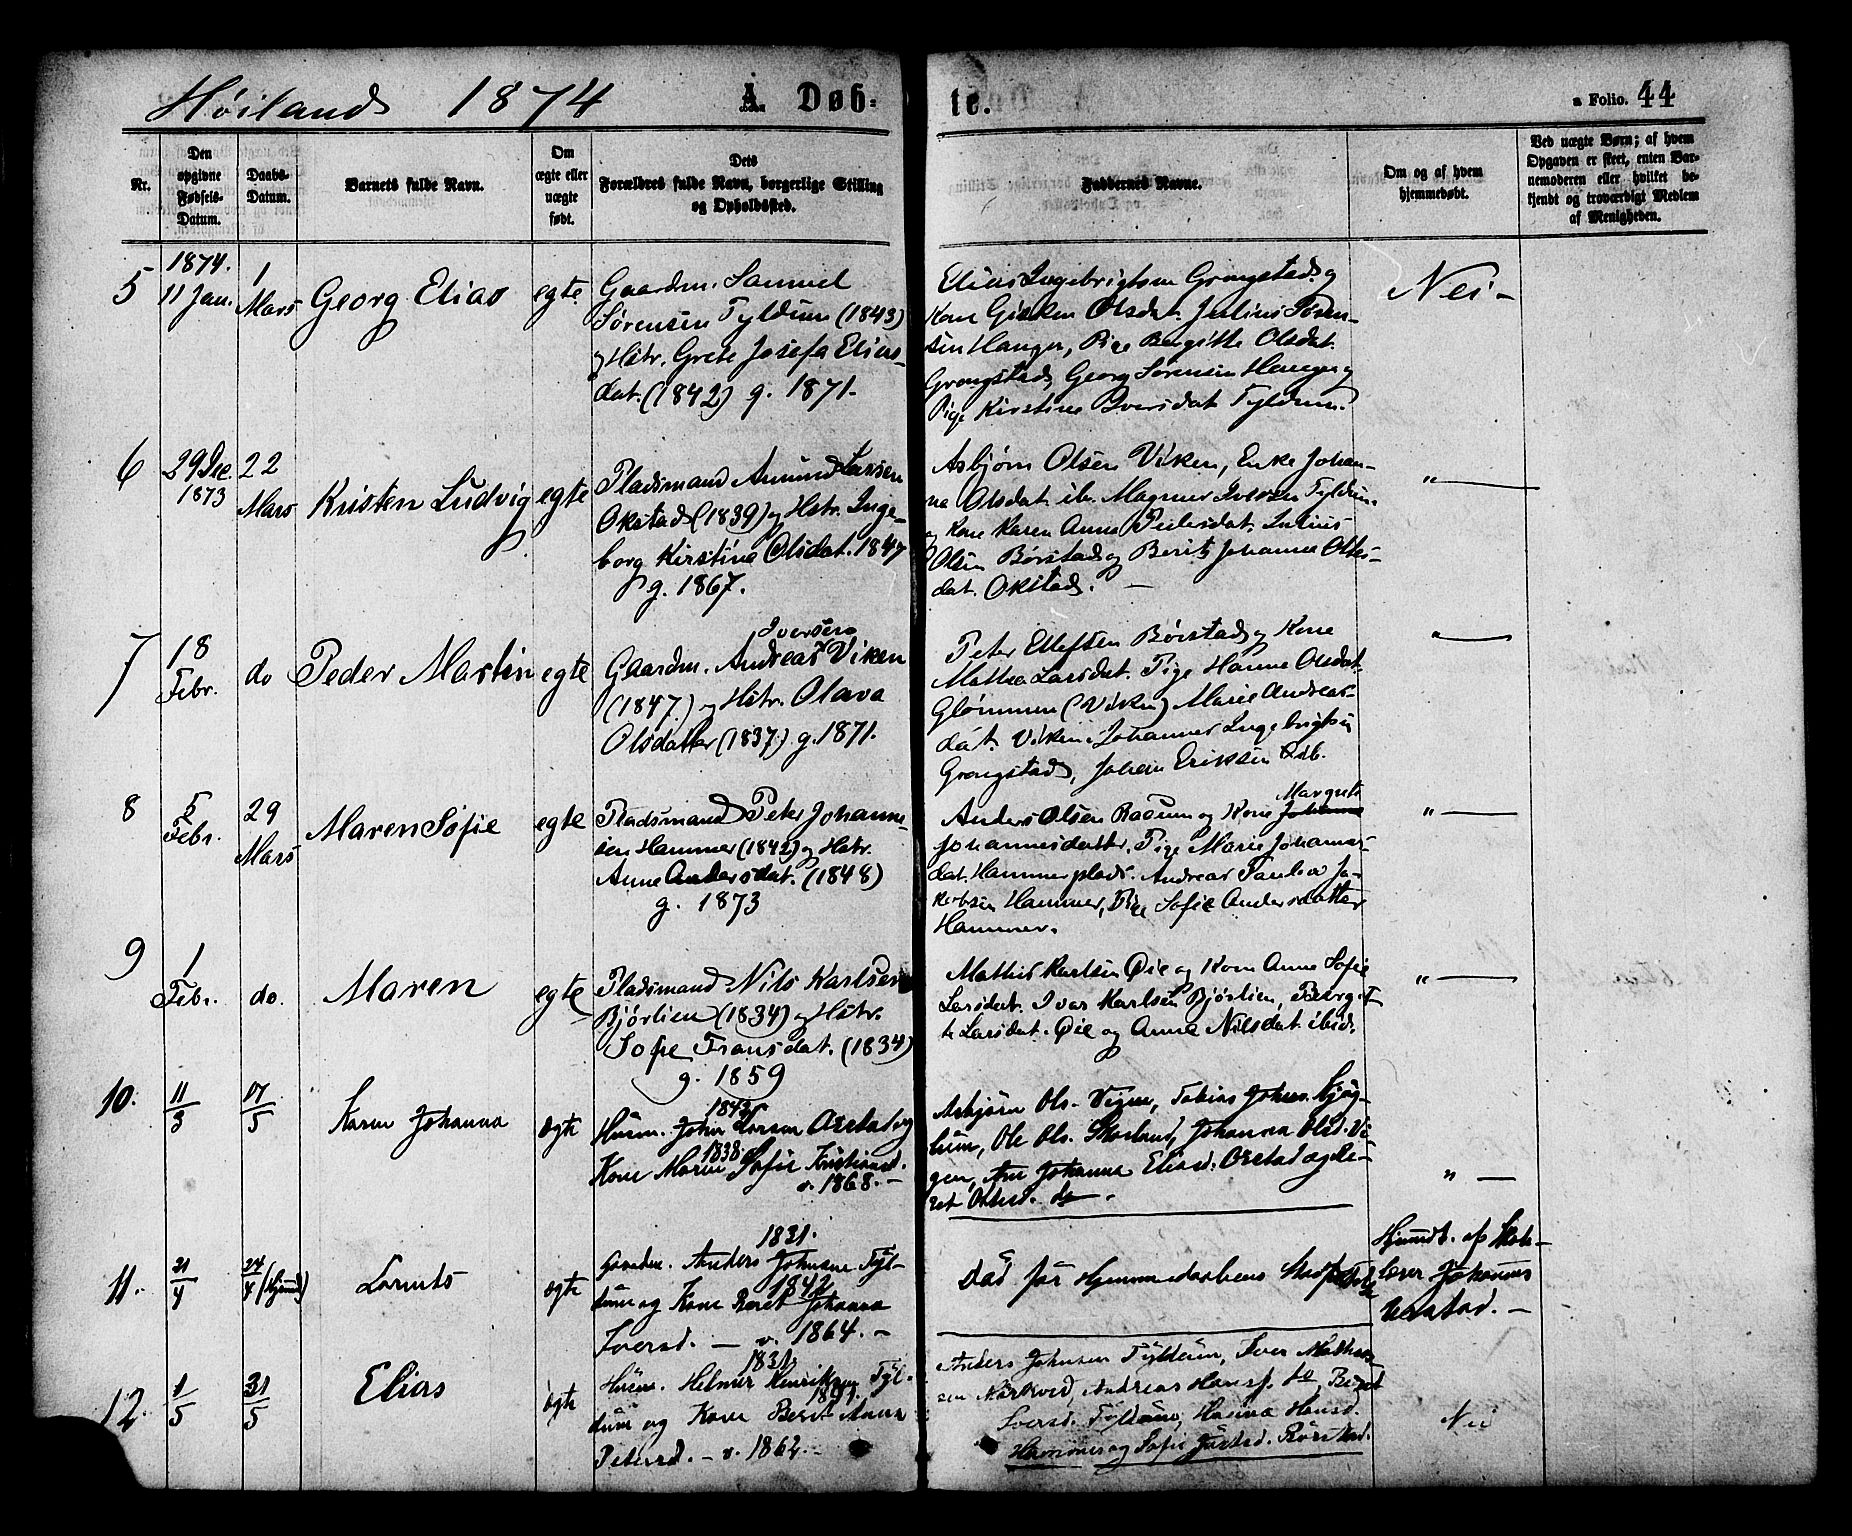 Höilands 1874 A. Døb-
te. a Folio. 44
Nr.
Den opgivne Fødsels-Datum.
Daabs-Datum.
Barnets fulde Navn.
Om ægte eller uægte født.
Dets Forældres fulde Navn, borgerlige Stilling og Opholdssted.
Faddernes Navne.
Om og af hvem hjemmedøbt.
Ved uægte Børn; af hvem Opgaven er skeet, enten Barnemoderen eller hvilket bekjendt og troværdigt Medlem af Menigheden.
5
1874.
11 Jan.
1 Mars
Georg Elias
egte
Gaardm. Samuel
Sørensen Tyldum (1843)
og Hstr. Grete Josefa Elias-
dat. (1842) g. 1871.
Elias Ingebrigtsen Grongstad og
Kone Gisken Olsdat. Julius Søren-
sen Hauger, Pige Bergitte Olsdat.
Grongstad, Georg Sørensen Hauger og
Pige Kirstine Iversdat. Tyldum.
Nei -
6
29 Dec.
1873
22
Mars
Kristen Ludvig
egte
Pladsmand Amund Larsen
Okstad (1839) og Hstr. Inge-
borg Kirstine Olsdat. 1847
g. 1867.
Asbjørn Olsen Viken, Enke Johan-
na Olsdat. ib. Magnus Iversen Tyldum
og Kone Karen Anna Pedersdat. Julius
Olsen Børstad og Berit Johanna Ottes-
dat. Okstad. —
" —
7
18
Febr.
do
Peder Martin
egte
Iversen
Gaardm. Andreas Viken
(1847) og Hstr. Olava
Olsdatter (1837) g. 1871.
Peter Ellefsen Børstad og Kone
Mathea Larsdat. Pige Hanna Olsdat.
Glømmen (Viken) Marie Andreas-
dat. Viken. Johannes Ingebrigtsen
Grongstad, Johan Eriksen
" —
8
5
Febr.
29
Mars
Maren Sofie
egte
Pladsmand Peter Johanne-
sen Hammer (1842) og Hstr.
Anne Andersdat. (1848)
g. 1873
Margrete
Anders Olsen Raaum og Kone Johanna
Johannesdatter. Pige Marie Johannes-
dat. Hammerplads. Andreas Paulus Ja-
kobsen Hammer, Pige Sofie Andersdatter
Hammer.
" —
9
1
Febr.
do.
Maren
egte
Pladsmand Nils Karlsen
Bjørlien (1834) og Hstr.
Sofie Fransdat. (1834)
g. 1859
Mathis Karlsen Øie og Kone Anna Sofie
Larsdat. Ivar Karlsen Bjørlien, Bergit-
te Larsdat. Øie og Anna Nilsdat. ibid.
" —
10.
11/3
17/5
Karen Johanna
ægte
1843
Husm. John Larsen Oxstad og
1838
Kone Maren Sofie Kristiansd.
v. 1868. -
Asbjørn Ols. Vigen, Tobias Johns.
Ole Ols. Skarland, Johanna Olsd. Vi-
gen, Ane Johanna Eliasd. Oxstad og Be-
ret Ottesd. do.
" —
11.
21/4
24/4 (Hjemd.)
Lornts
ægte
1831.
Gaardm. Anders Johnsen Tyl-
1842
dum og Kone Beret Johanna
Iversd. — v. 1864. -
Død før Hjemmedaabens Stadfæstelse
Hjemdt. af Skole-
lærer Johannes
12.
1/5
31/5
Elias
ægte
1831
Husm. Helmer Henriksen Tyl-
dum og Kone Berit Anna
Petersd. — v. 1862. -
Anders Johnsen Tyldum, Iver Mathias-
sen Mørkved, Andreas Hans. do, Beret
Iversd. Tyldum, Hanna Hansd.
Hammer og Sofie Justsd. Børstad.
Nei